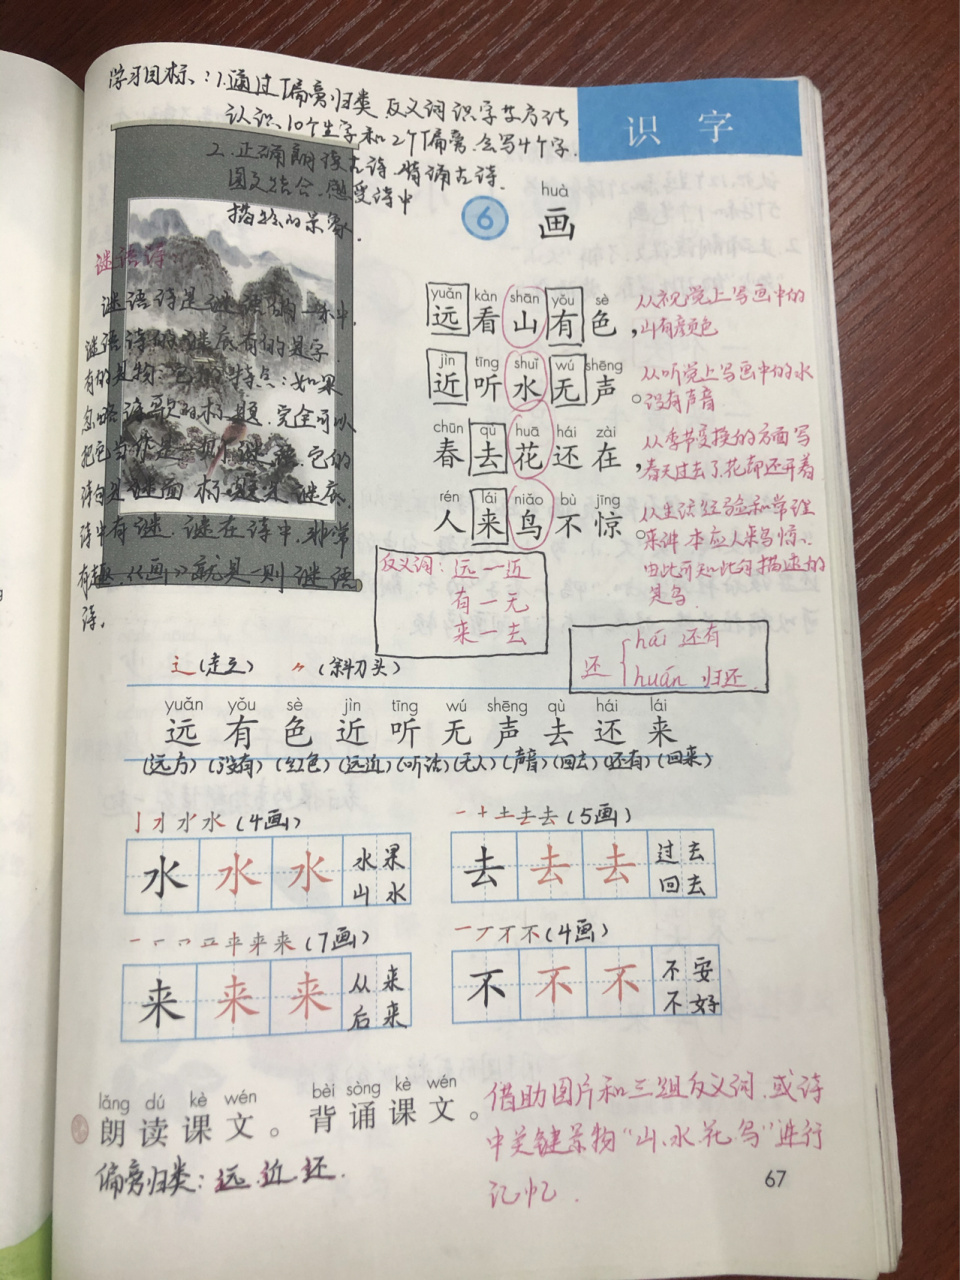 学习目标：1.通过偏旁归类 反义词识字等方法
认识10个生字和2个偏旁.会写4个字.
2.正确朗读古诗.背诵古诗.
图文结合.感受诗中
描绘的景象.
识字
huà
6 画
谜语诗：
谜语诗是谜语的一种.
谜语诗的谜底有的是字.
有的是物.它的特点：如果
忽略诗歌的标题.完全可以
把它当作是一则谜语.它的
诗句是谜面.标题是谜底.
诗中有谜.谜在诗中.非常
有趣.《画》就是一则谜语
诗.
yuǎn kàn shān yǒu sè
远看山有色，
从视觉上写画中的
山有颜色
jìn tīng shuǐ wú shēng
近听水无声。
从听觉上写画中的水
没有声音
chūn qù huā hái zài
春去花还在，
从季节变换的方面写
春天过去了.花却还开着
rén lái niǎo bù jīng
人来鸟不惊。
从生活经验和常理
来讲.本应人来鸟惊.
由此可知此句描述的
是鸟
反义词：远—近
有—无
来—去
还 hái 还有
huán 归还
辶(走之) 〃(斜刀头)
yuǎn yǒu sè jìn tīng wú shēng qù hái lái
远 有 色 近 听 无 声 去 还 来
(远方)(没有)(红色)(远近)(听话)(无人)(声音)(回去)(还有)(回来)
(4画)
水 水 水 水果
山水
(5画)
去 去 去 过去
回去
(7画)
来 来 来 从来
后来
(4画)
不 不 不 不安
不好
lǎng dú kè wén bèi sòng kè wén
朗读课文。背诵课文。
偏旁归类：远.近.还.
借助图片和三组反义词.或诗
中关键景物“山.水.花.鸟”进行
记忆.
67